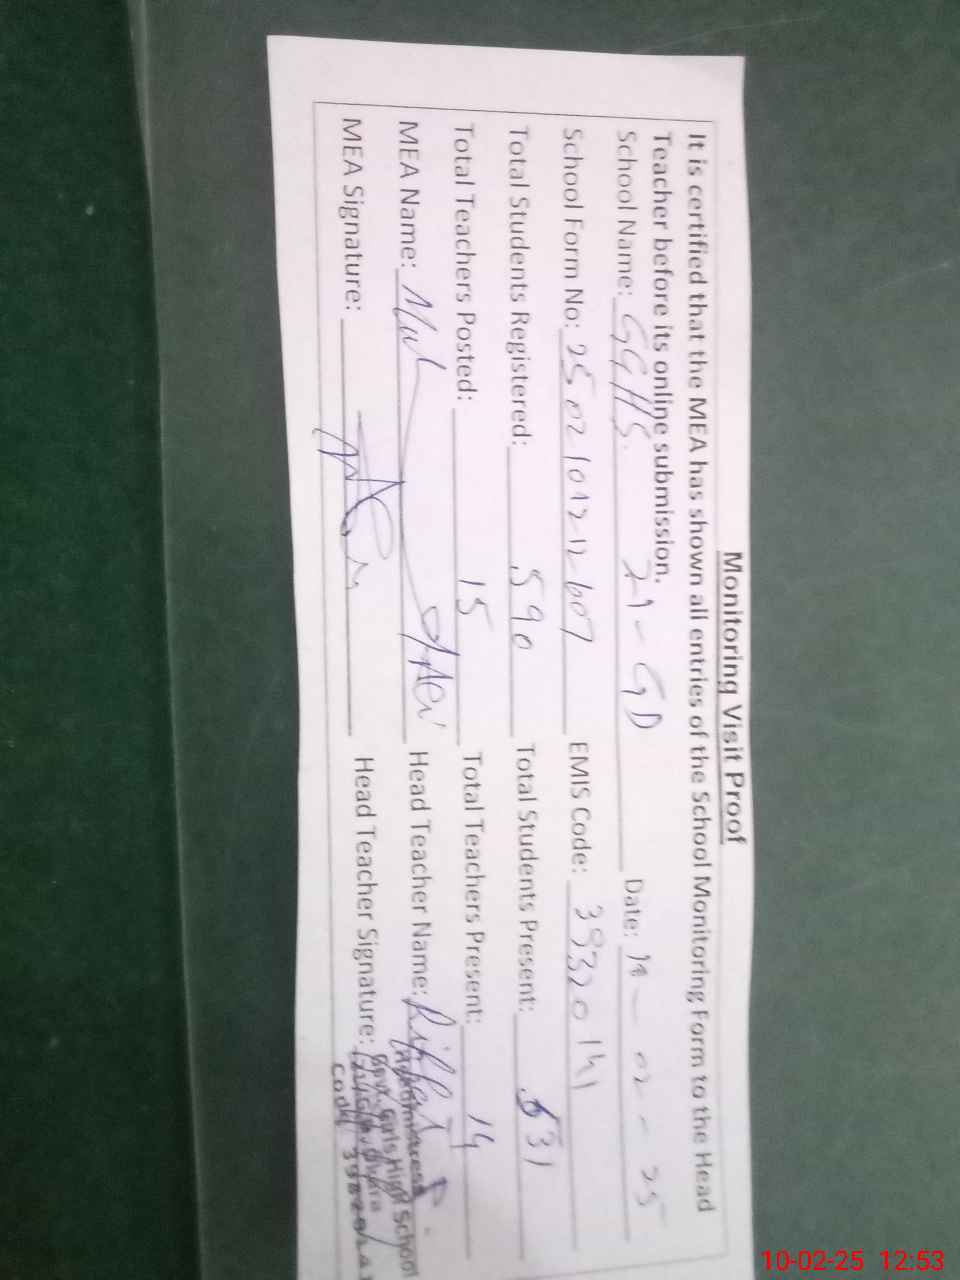 Monitoring Visit Proof
It is certified that the MEA has shown all entries of the School Monitoring Form to the Head
Teacher before its online submission.
School Name: GGHS. 21-GD Date: 10-02-25
School Form No: 2502101212607 EMIS Code:
Total Students Registered: 590 Total Students Present: 531
Total Teachers Posted: 15 Total Teachers Present: 14
MEA Name: Head Teacher Name: Riffat
MEA Signature: Head Teacher Signature:
Headmistress
Govt. Girls High School
Code
10-02-25 12:53